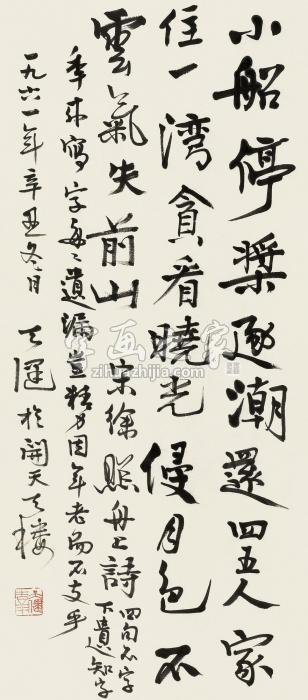 小船停槳逐潮還四五人家
住一湾貪看曉光侵月色不
雲氣失前山宋徐照舟上詩
四句不字
下遺知字
秊來寫字每々遺漏豈精力因年老而不支乎
一九六一年辛丑冬月於開天樓
zihuazhijia.com